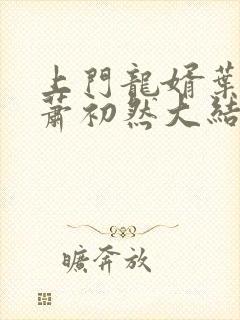 上門龍婿葉
蕭初然大結
曠奔放